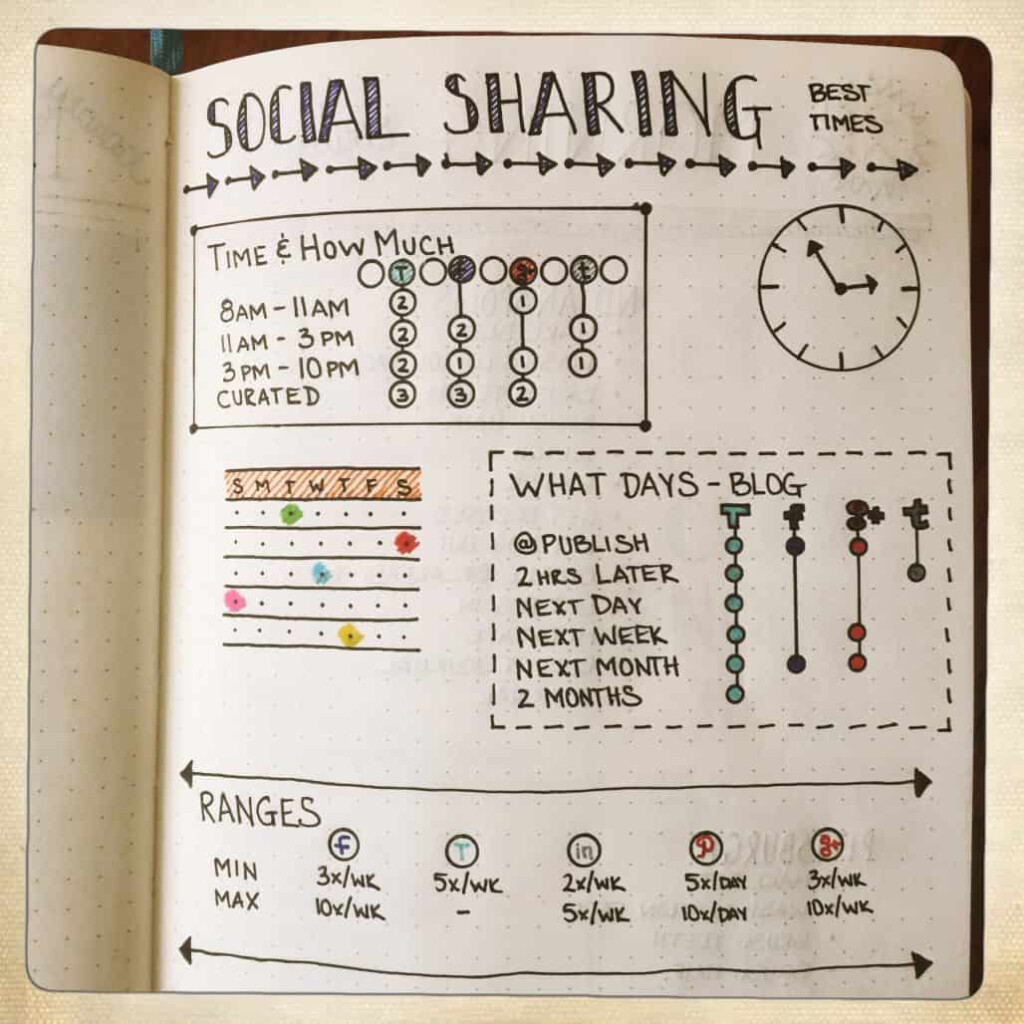 SOCIAL SHARING
BEST
TIMES
TIME & HOW MUCH
T f g+ t
8AM - 11AM 2 1
11AM - 3PM 2 2 1
3PM - 10PM 2 1 1 1
CURATED 3 3 2
S M T W T F S
WHAT DAYS - BLOG
T f g+ t
@PUBLISH
2 HRS LATER
NEXT DAY
NEXT WEEK
NEXT MONTH
2 MONTHS
RANGES
f T in P g+
MIN 3x/WK 5x/WK 2x/WK 5x/DAY 3x/WK
MAX 10x/WK - 5x/WK 10x/DAY 10x/WK